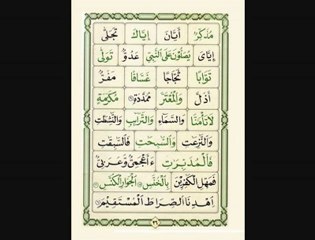 مُدَّكِرٍ اَيَّانَ اِيَّاكَ تَجَلّٰى
اِيَّايَ يُصَلُّوْنَ عَلَى النَّبِيِّ عَدُوٌّ تَوَلّٰى
تَوَّابًا ثَجَّاجًا غَسَّاقًا مَفَرُّ
اَذَلَّ وَالْمُعْتَرَّ مُمَدَّدَةٍ مُكَرَّمَةٍ
لَاتَأْمَنَّا وَالسَّمَآءِ وَالتَّرَآئِبِ وَالنّٰشِطٰتِ
وَالنّٰزِعٰتِ وَالسّٰبِحٰتِ فَالسّٰبِقٰتِ
فَالْمُدَبِّرٰتِ ءَاَعْجَمِيٌّ وَّعَرَبِيٌّ
فَمَهِّلِ الْكٰفِرِيْنَ بِالْخُنَّسِ الْجَوَارِ الْكُنَّسِ
اِهْدِنَا الصِّرَاطَ الْمُسْتَقِيْمَ